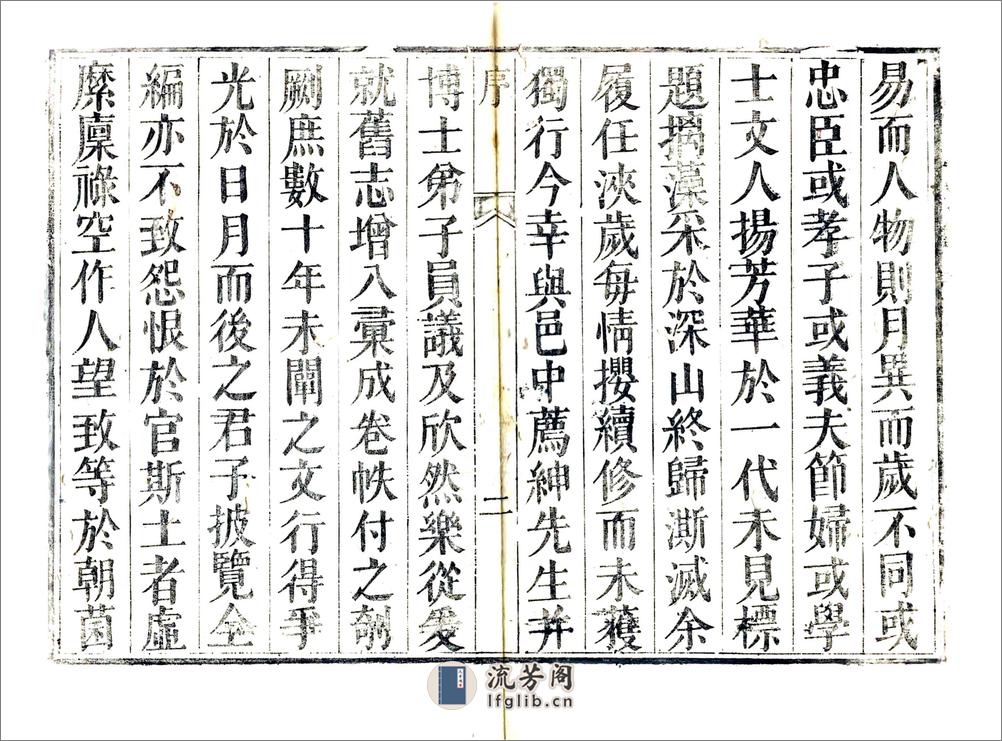 易而人物則月異而歲不同或
忠臣或孝子或義夫節婦或學
士文人揚芳華於一代未見標
題摛藻采於深山終歸澌滅余
履任浹歲每情攖續修而未獲
獨行今幸與邑中薦紳先生并
序 二
博士弟子員議及欣然樂從爰
就舊志增入彙成卷帙付之剞
劂庶數十年未闡之文行得爭
光於日月而後之君子披覽全
編亦不致怨恨於官斯土者虛
縻廩祿空作人望致等於朝菌
流芳阁
lfglib.cn